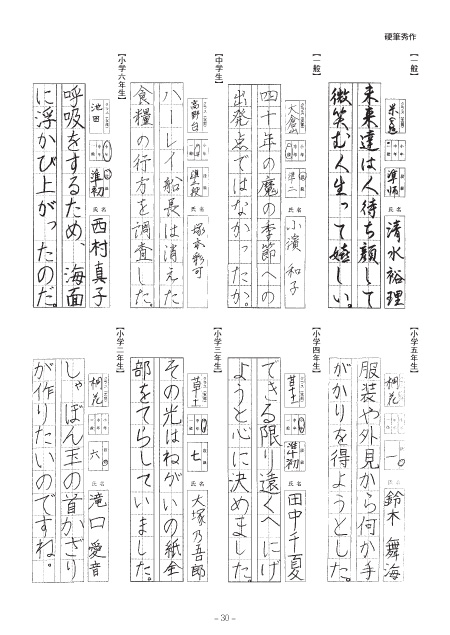 硬筆秀作
【一般】
米倉
準師
氏名
清水裕理
未来達は人待ち顔して
微笑む人生って嬉しい。
【一般】
大倉山
準二
氏名
小濱和子
四十年の魔の季節への
出発点ではなかったか。
【中学生】
高野台
準段
氏名
塚本彩可
ハーレイ船長は消えた
食糧の行方を調査した。
【小学六年生】
池田
準初
氏名
西村真子
呼吸をするため、海面
に浮かび上がったのだ。
【小学五年生】
桐花
一
氏名
鈴木舞海
服装や外見から何か手
がかりを得ようとした。
【小学四年生】
草土
準初
氏名
田中千夏
できる限り遠くへにげ
ようと心に決めました。
【小学三年生】
草土
七
氏名
大塚乃吾郎
その光はねがいの紙全
部をてらしていました。
【小学二年生】
桐花
六
氏名
滝口愛音
しゃぼん玉の首かざり
が作りたいのですね。
- 30 -